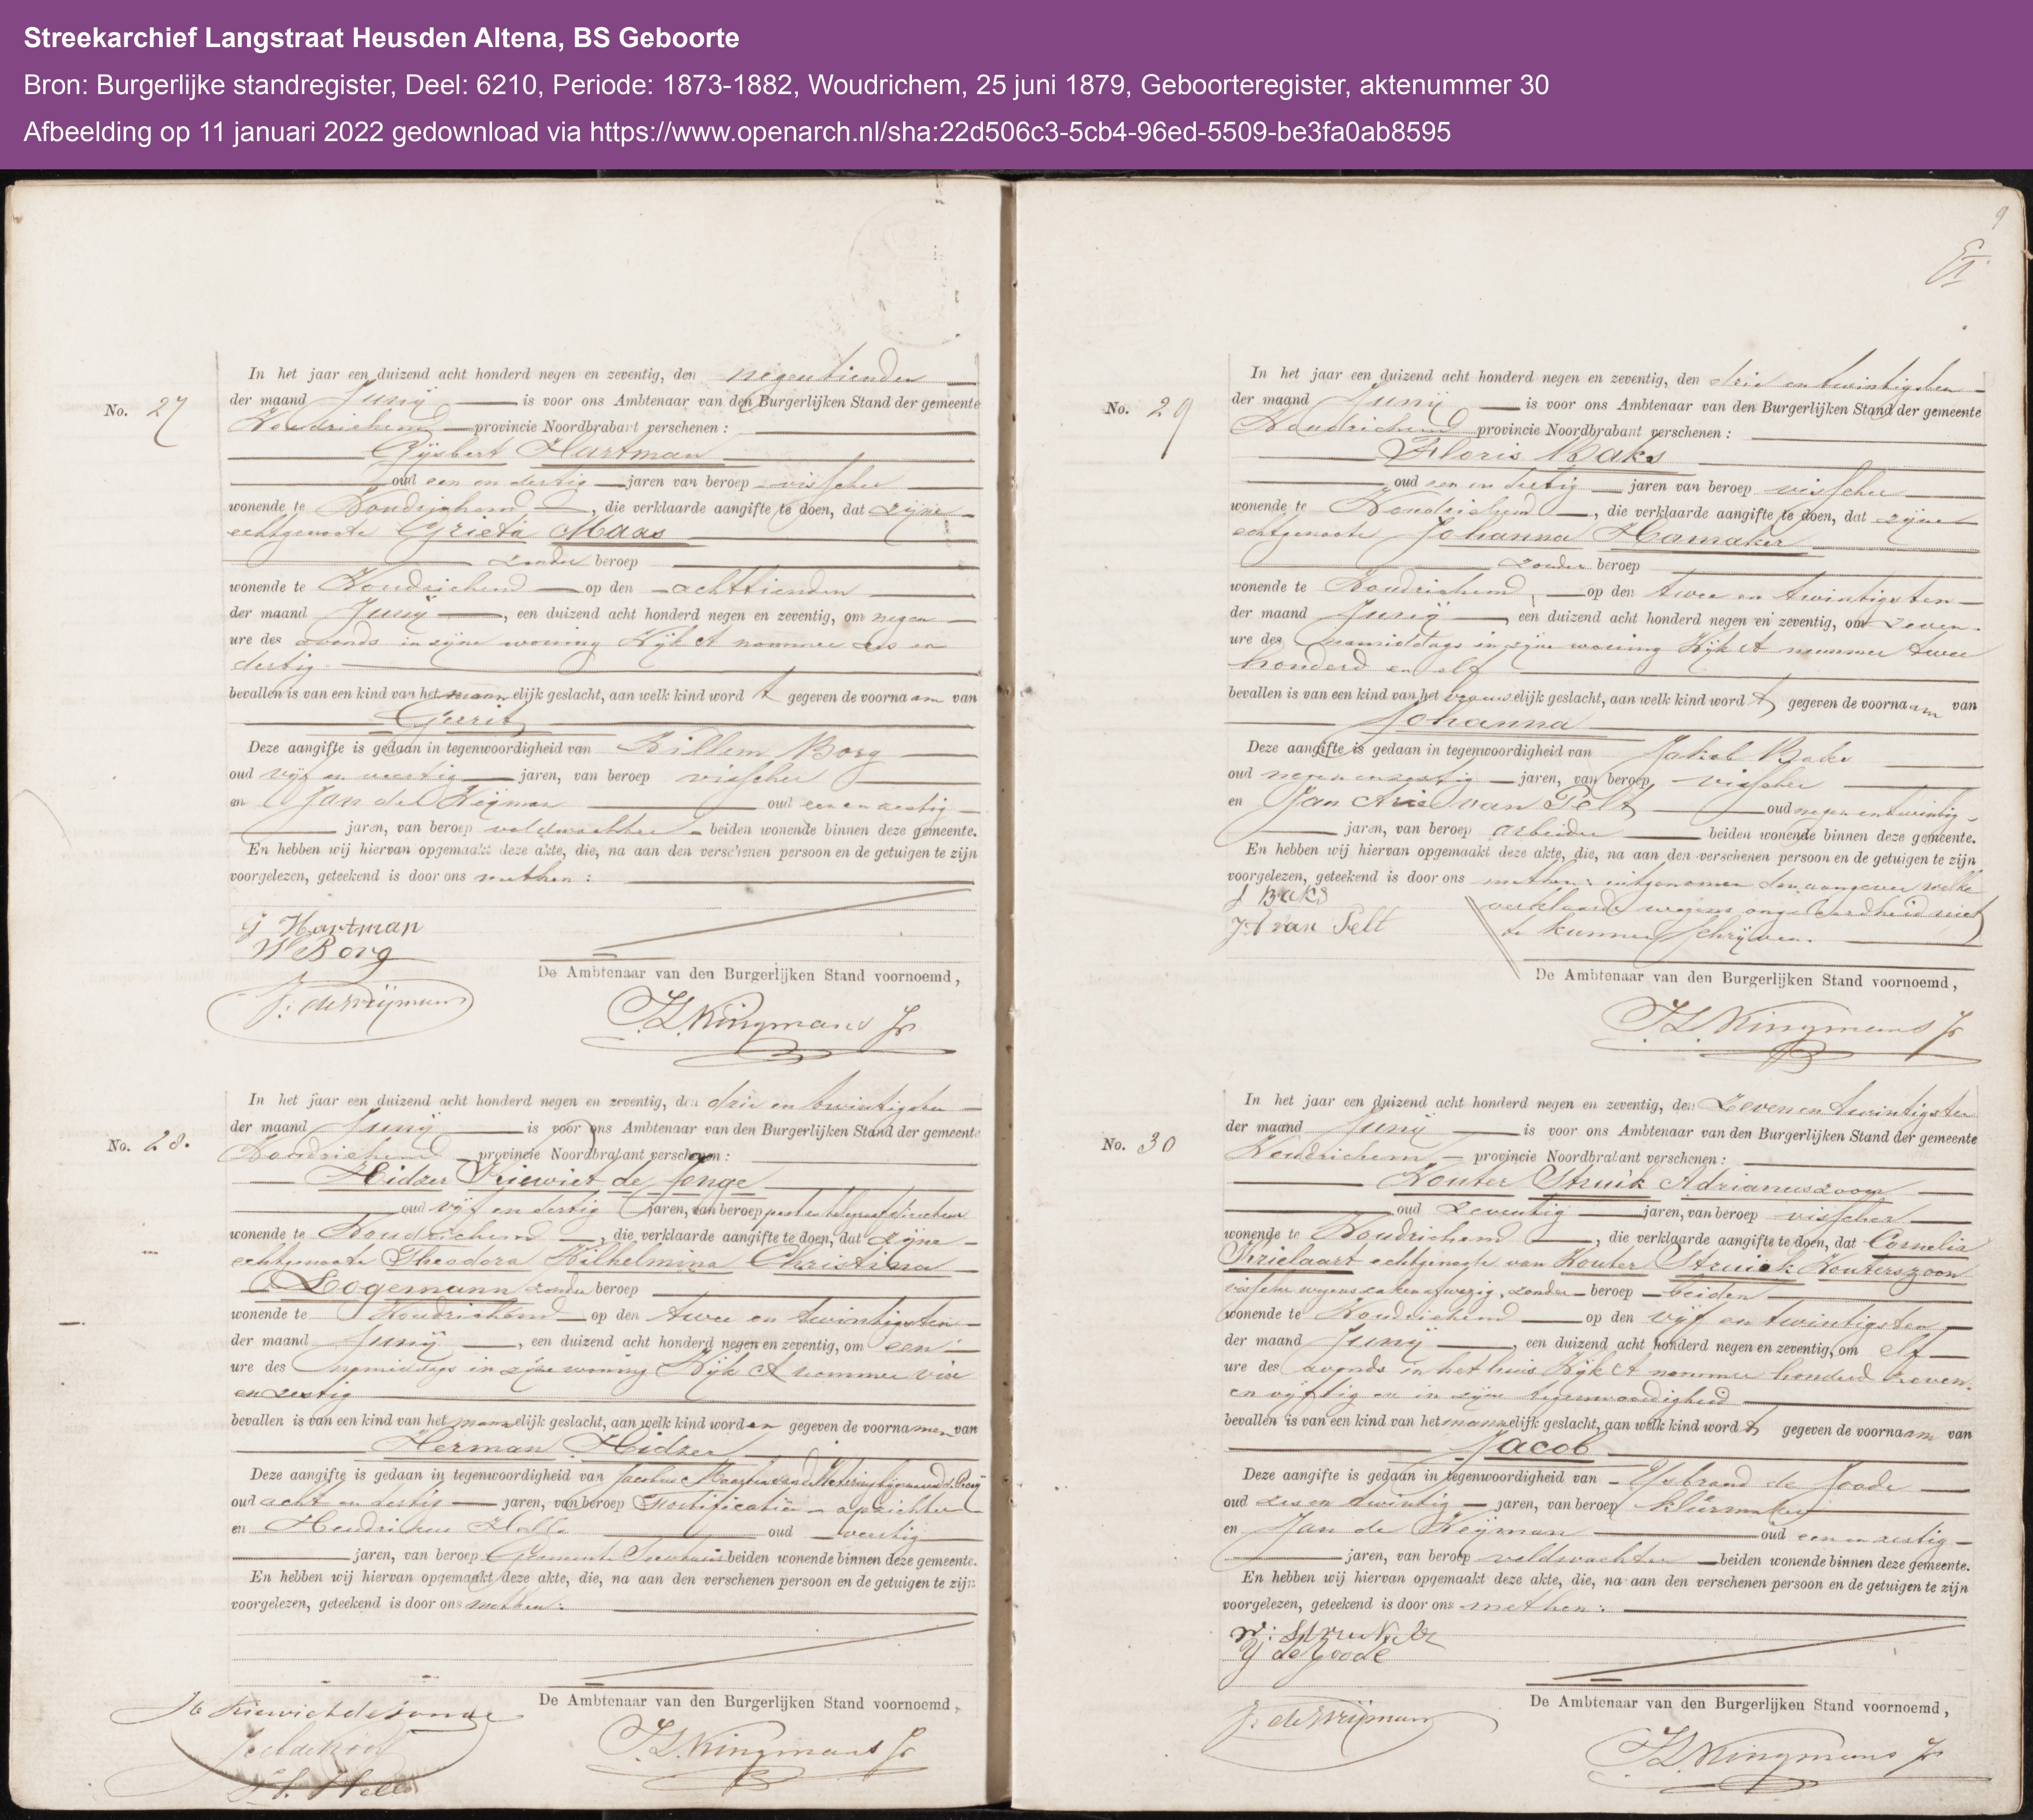 Streekarchief Langstraat Heusden Altena, BS Geboorte
Bron: Burgerlijke standregister, Deel: 6210, Periode: 1873-1882, Woudrichem, 25 juni 1879, Geboorteregister, aktenummer 30
Afbeelding op 11 januari 2022 gedownload via https://www.openarch.nl/sha:22d506c3-5cb4-96ed-5509-be3fa0ab8595
In het jaar een duizend acht honderd negen en zeventig, den negentienden
No. 27
der maand Junij is voor ons Ambtenaar van den Burgerlijken Stand der gemeente
Woudrichem provincie Noordbrabant verschenen:
Gijsbert Hartman
oud een en dertig jaren van beroep visscher
wonende te Woudrichem, die verklaarde aangifte te doen, dat zijne
echtgenoote Grieta Maas
zonder beroep
wonende te Woudrichem op den achttienden
der maand Junij, een duizend acht honderd negen en zeventig, om negen
ure des avonds in zijne woning Wijk A nommer zes en
dertig
bevallen is van een kind van het mannelijk geslacht, aan welk kind wordt gegeven de voornaam van
Gerrit
Deze aangifte is gedaan in tegenwoordigheid van Willem Borg
oud vijf en veertig jaren, van beroep visscher
en Jan de Weijman oud een en zestig
jaren, van beroep veldwachter beiden wonende binnen deze gemeente.
En hebben wij hiervan opgemaakt deze akte, die, na aan den verschenen persoon en de getuigen te zijn
voorgelezen, geteekend is door ons met hen:
G Hartman
W Borg
De Ambtenaar van den Burgerlijken Stand voornoemd,
J: de Weijman
Kingmans Jr
In het jaar een duizend acht honderd negen en zeventig, den drie en twintigsten
No. 28.
der maand Junij is voor ons Ambtenaar van den Burgerlijken Stand der gemeente
Woudrichem provincie Noordbrabant verschenen:
Hidzer Kiewiet de Jonge
oud vijf en dertig jaren, van beroep post en telegraaf directeur
wonende te Woudrichem, die verklaarde aangifte te doen, dat zijne
echtgenoote Theodora Wilhelmina Christina
Logemann zonder beroep
wonende te Woudrichem op den twee en twintigsten
der maand Junij, een duizend acht honderd negen en zeventig, om een
ure des namiddags in zijne woning Wijk A nommer vier
en zestig
bevallen is van een kind van het mannelijk geslacht, aan welk kind worden gegeven de voornamen van
Herman Hidzer
Deze aangifte is gedaan in tegenwoordigheid van Jacobus Maarten van de
oud acht en dertig jaren, van beroep Fortificatie opzichter
en Hendrikus oud veertig
jaren, van beroep Gemeente beiden wonende binnen deze gemeente.
En hebben wij hiervan opgemaakt deze akte, die, na aan den verschenen persoon en de getuigen te zijn
voorgelezen, geteekend is door ons met hen:
De Ambtenaar van den Burgerlijken Stand voornoemd,
H Kiewiet de Jonge
Kingmans Jr
9
In het jaar een duizend acht honderd negen en zeventig, den drie en twintigsten
No. 29
der maand Junij is voor ons Ambtenaar van den Burgerlijken Stand der gemeente
Woudrichem provincie Noordbrabant verschenen:
Floris Baks
oud een en dertig jaren van beroep visscher
wonende te Woudrichem, die verklaarde aangifte te doen, dat zijne
echtgenoote Johanna Hamaker
zonder beroep
wonende te Woudrichem, op den twee en twintigsten
der maand Junij, een duizend acht honderd negen en zeventig, om zeven
ure des namiddags in zijne woning Wijk A nummer twee
honderd en elf
bevallen is van een kind van het vrouwelijk geslacht, aan welk kind wordt gegeven de voornaam van
Johanna
Deze aangifte is gedaan in tegenwoordigheid van Jakob Baks
oud negen en zestig jaren, van beroep visscher
en Jan Arie van Pelt oud negen en twintig
jaren, van beroep arbeider beiden wonende binnen deze gemeente.
En hebben wij hiervan opgemaakt deze akte, die, na aan den verschenen persoon en de getuigen te zijn
voorgelezen, geteekend is door ons met hen: uitgenomen den aangever welke
J Baks verklaarde wegens ongeleerdheid niet
J A van Pelt te kunnen schrijven.
De Ambtenaar van den Burgerlijken Stand voornoemd,
Kingmans Jr
In het jaar een duizend acht honderd negen en zeventig, den zeven en twintigsten
No. 30
der maand Junij is voor ons Ambtenaar van den Burgerlijken Stand der gemeente
Woudrichem provincie Noordbrabant verschenen:
Wouter Struik Adrianuszoon
oud zeventig jaren, van beroep visscher
wonende te Woudrichem, die verklaarde aangifte te doen, dat Cornelia
Krielaart echtgenoote van Wouter Struik Wouterszoon
visscher wegens zaken afwezig, zonder beroep beiden
wonende te Woudrichem op den vijf en twintigsten
der maand Junij, een duizend acht honderd negen en zeventig, om elf
ure des avonds in het huis Wijk A nommer honderd zeven
en vijftig en in zijne tegenwoordigheid
bevallen is van een kind van het mannelijk geslacht, aan welk kind wordt gegeven de voornaam van
Jacob
Deze aangifte is gedaan in tegenwoordigheid van IJsbrand de Joode
oud zes en twintig jaren, van beroep
en Jan de Weijman oud een en zestig
jaren, van beroep veldwachter beiden wonende binnen deze gemeente.
En hebben wij hiervan opgemaakt deze akte, die, na aan den verschenen persoon en de getuigen te zijn
voorgelezen, geteekend is door ons met hen:
Y de Joode
De Ambtenaar van den Burgerlijken Stand voornoemd,
J: de Weijman
Kingmans Jr